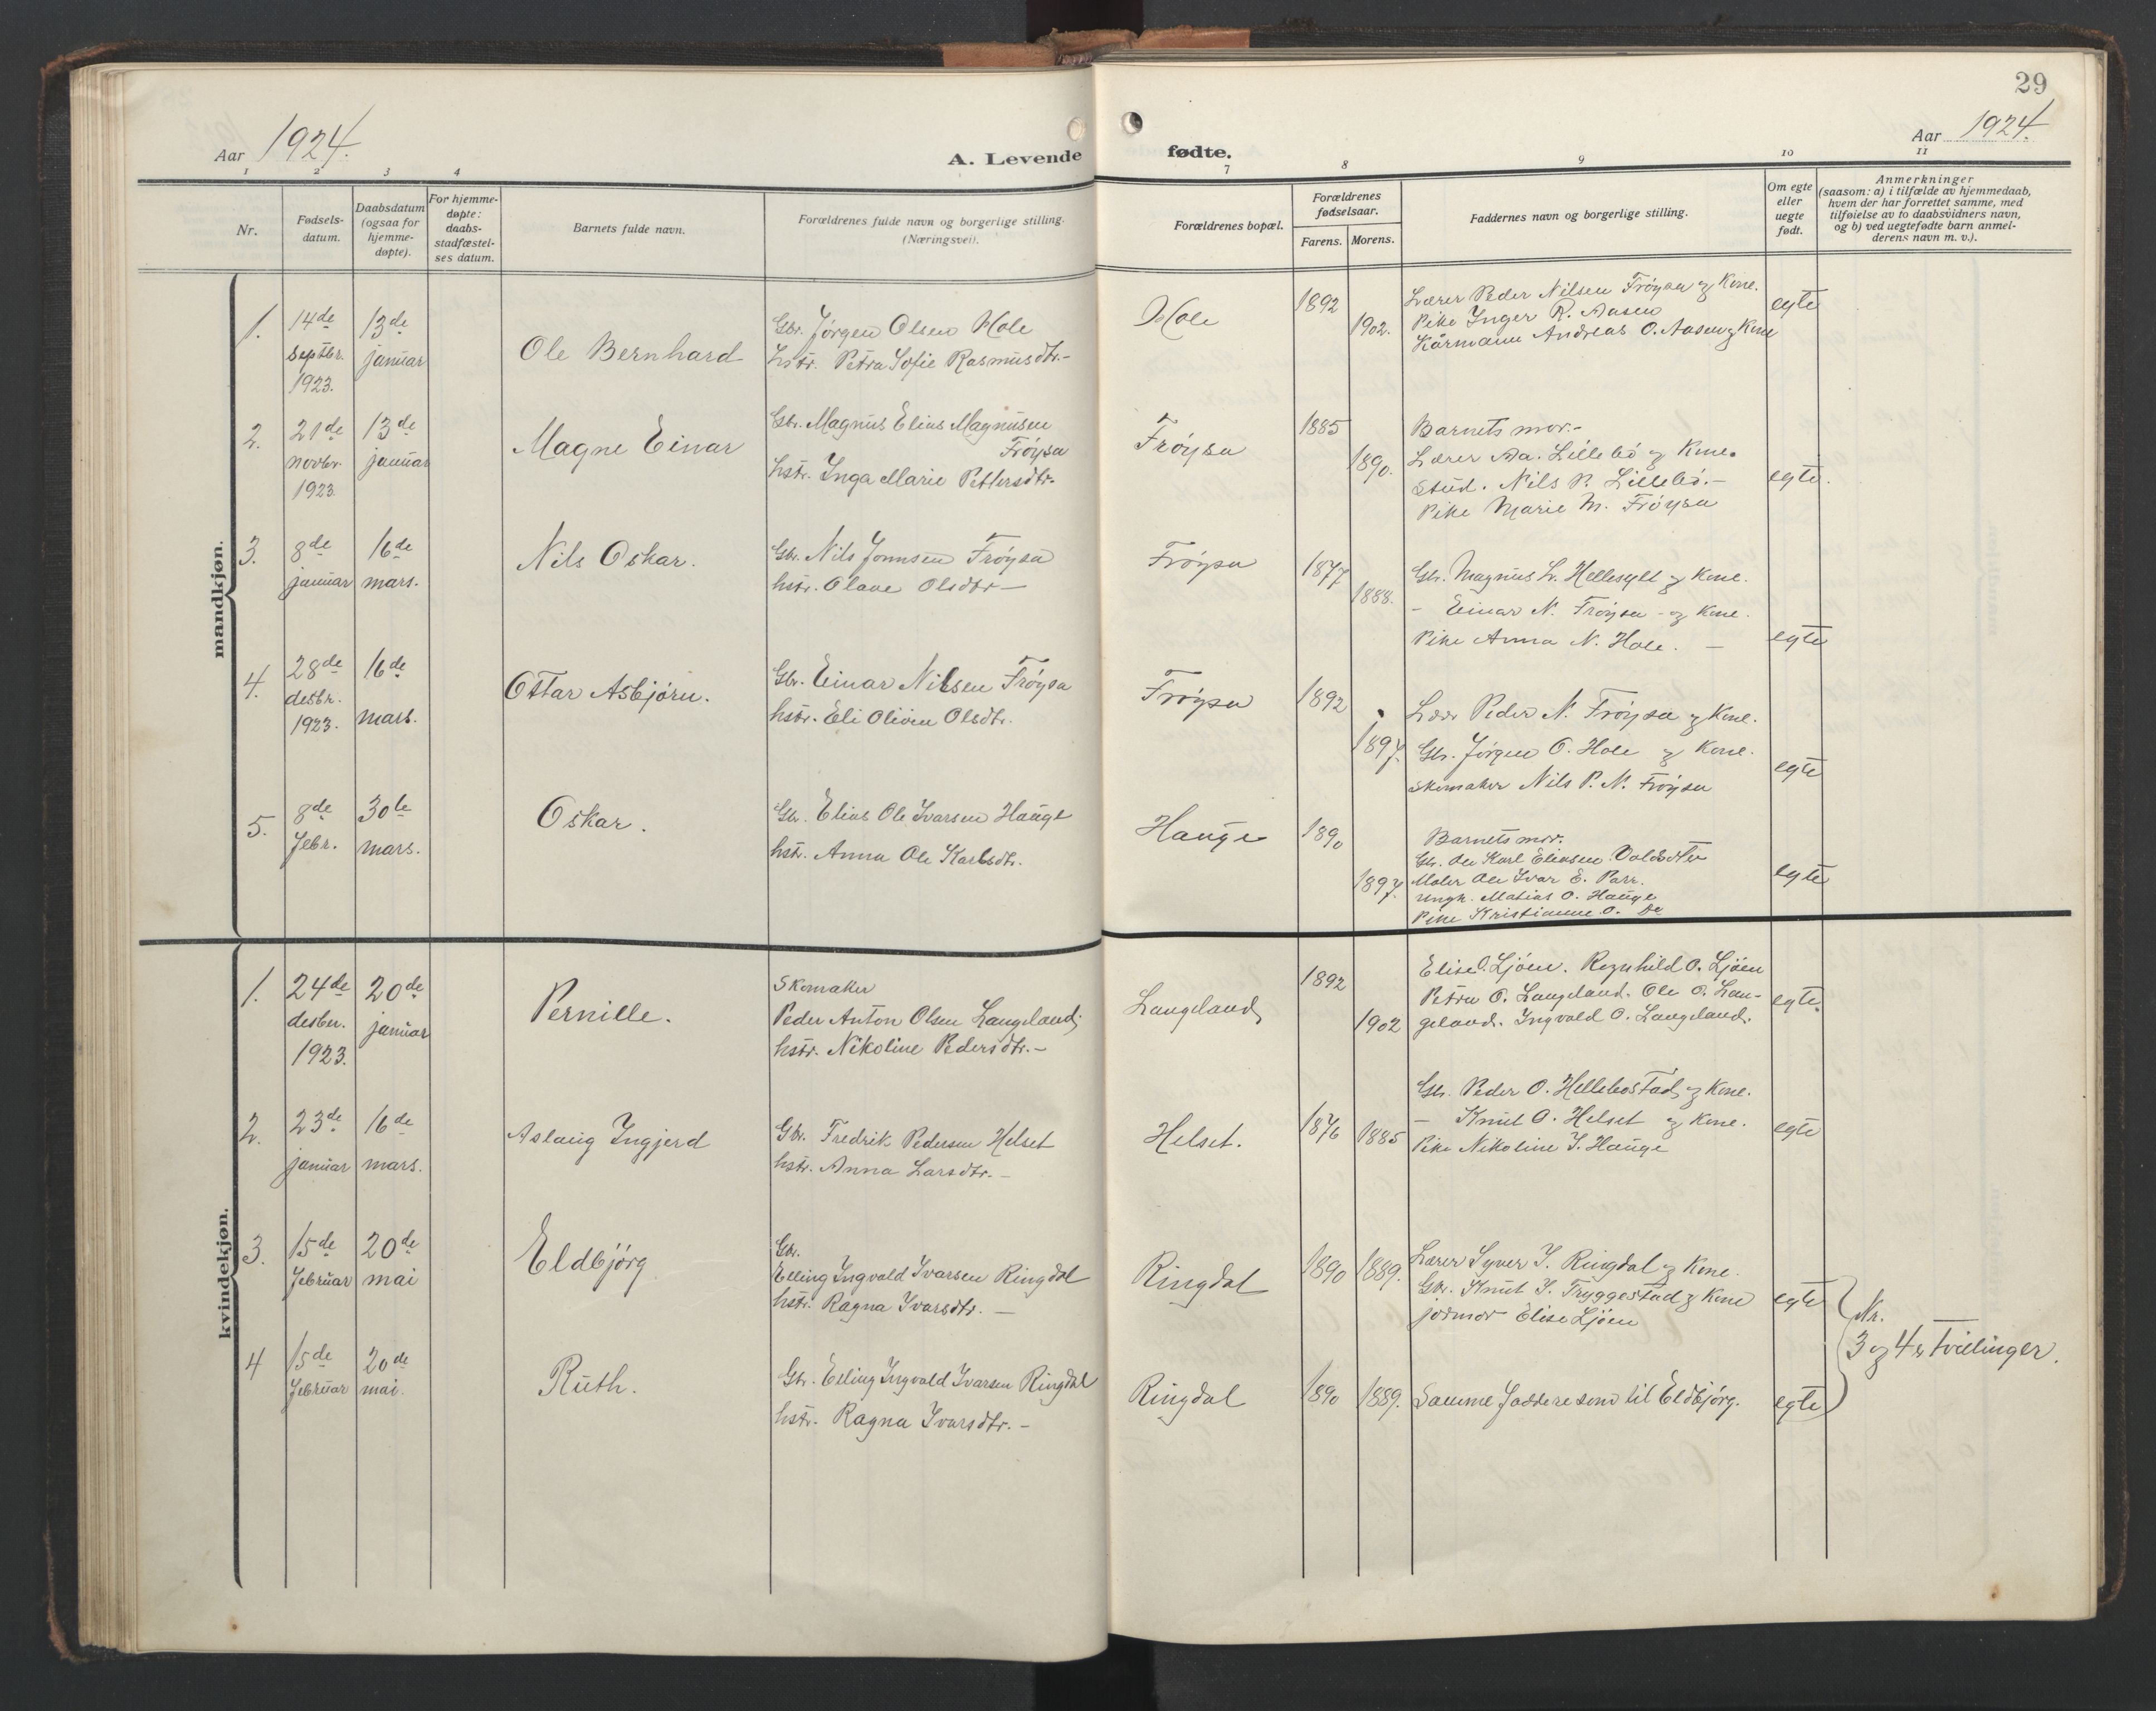 29
Aar 1924.
A. Levende
fødte.
Aar 1924.
1 2 3 4 7 8 9 10 11
Nr.
Fødsels-
datum.
Daabsdatum
(ogsaa for
hjemme-
døpte).
For hjemme-
døpte:
daabs-
stadfæstel-
ses datum.
Barnets fulde navn.
Forældrenes fulde navn og borgerlige stilling.
(Næringsvei).
Forældrenes bopæl.
Forældrenes
fødselsaar.
Farens. Morens.
Faddernes navn og borgerlige stilling.
Om egte
eller
uegte
født.
Anmerkninger
(saasom: a) i tilfælde av hjemmedaab,
hvem der har forrettet samme, med
tilføielse av to daabsvidners navn,
og b) ved uegtefødte barn anmel-
derens navn m. v.).
mandkjøn.
1.
14de
septbr.
1923.
13de
januar
Ole Bernhard
Gbr. Jørgen Olsen Hole
hstr. Petra Sofie Rasmusdtr.-
Hole
1892
1902.
Lærer Peder Nilsen Frøysa og Kone.
Pike Inger R. Aasen
Kårmann Andreas O. Aasen og Kone
egte
2.
21de
novbr.
1923.
13de
januar
Magne Einar
Gbr. Magnus Elias Magnusen
Frøysa
hstr. Inga Marie Pettersdtr.
Frøysa
1885
1890.
Barnets mor.-
Lærer Aa. Lillebø og Kone.
Stud. Nils P. Lillebø.-
Pike Marie M. Frøysa
egte.
3.
8de
januar
16de
mars.
Nils Oskar.
Gbr. Nils Jonnsen Frøysa
hstr. Olave Olsdtr-
Frøysa
1877
1888.
Gbr. Magnus L. Hellesylt og Kone.
- Einar N. Frøysa - og Kone.
Pike Anna N. Hole. -
egte
4.
28de
desbr.
1923.
16de
mars.
Ottar Asbjørn.
Gbr. Einar Nilsen Frøysa
hstr. Eli Olivie Olsdtr.
Frøysa
1892
1897.
Lærer Peder N. Frøysa og Kone.
Gbr. Jørgen O. Hole og Kone.
Skomaker Nils P. N. Frøysa
egte
5.
8de
febr.
30te
mars.
Oskar.
Gbr. Elias Ole Ivarsen Hauge
hstr. Anna Ole Karlsdtr.
Hauge
1890
1897.
Barnets mor.
Gbr. Ole Karl Eliasen
Maler Ole Ivar E.
Ungk. Matias O. Hauge
Pike Kristianne O. Do
egte
kvindekjøn.
1.
24de
desbr.
1923.
20de
januar
Pernille.
Skomaker
Peder Anton Olsen Langeland;
hstr. Nikoline Pedersdtr.-
Langeland
1892
1902
Elise O. Ljøen. Ragnhild O. Ljøen
Petra O. Langeland. Ole O. Lan-
geland. Ingvald O. Langeland.
egte.
2.
23de
januar
16de
mars.
Aslaug Ingjerd
Gbr. Fredrik Pedersen Helset
hstr. Anna Larsdtr.-
Helset.
1876
1885
Gbr. Peder O. Hellebostad og Kone.
- Knut O. Helset og Kone.
Pike Nikoline I. Hauge
egte
3.
15de
februar
20de
mai
Eldbjørg
Gbr.
Elling Ingvald Ivarsen Ringdal
hstr. Ragna Ivarsdtr. -
Ringdal
1890
1889.
Lærer Syver I. Ringdal og Kone.
Gbr. Knut I. Tryggestad og Kone
jormor Elise Ljøen
egte
Nr.
3 og 4 er tvillinger.
4
15de
februar
20de
mai.
Ruth.
Gbr. Elling Ingvald Ivarsen Ringdal
hstr. Ragna Ivarsdtr. -
Ringdal
1890
1889.
Samme faddere som til Eldbjørg.
egte